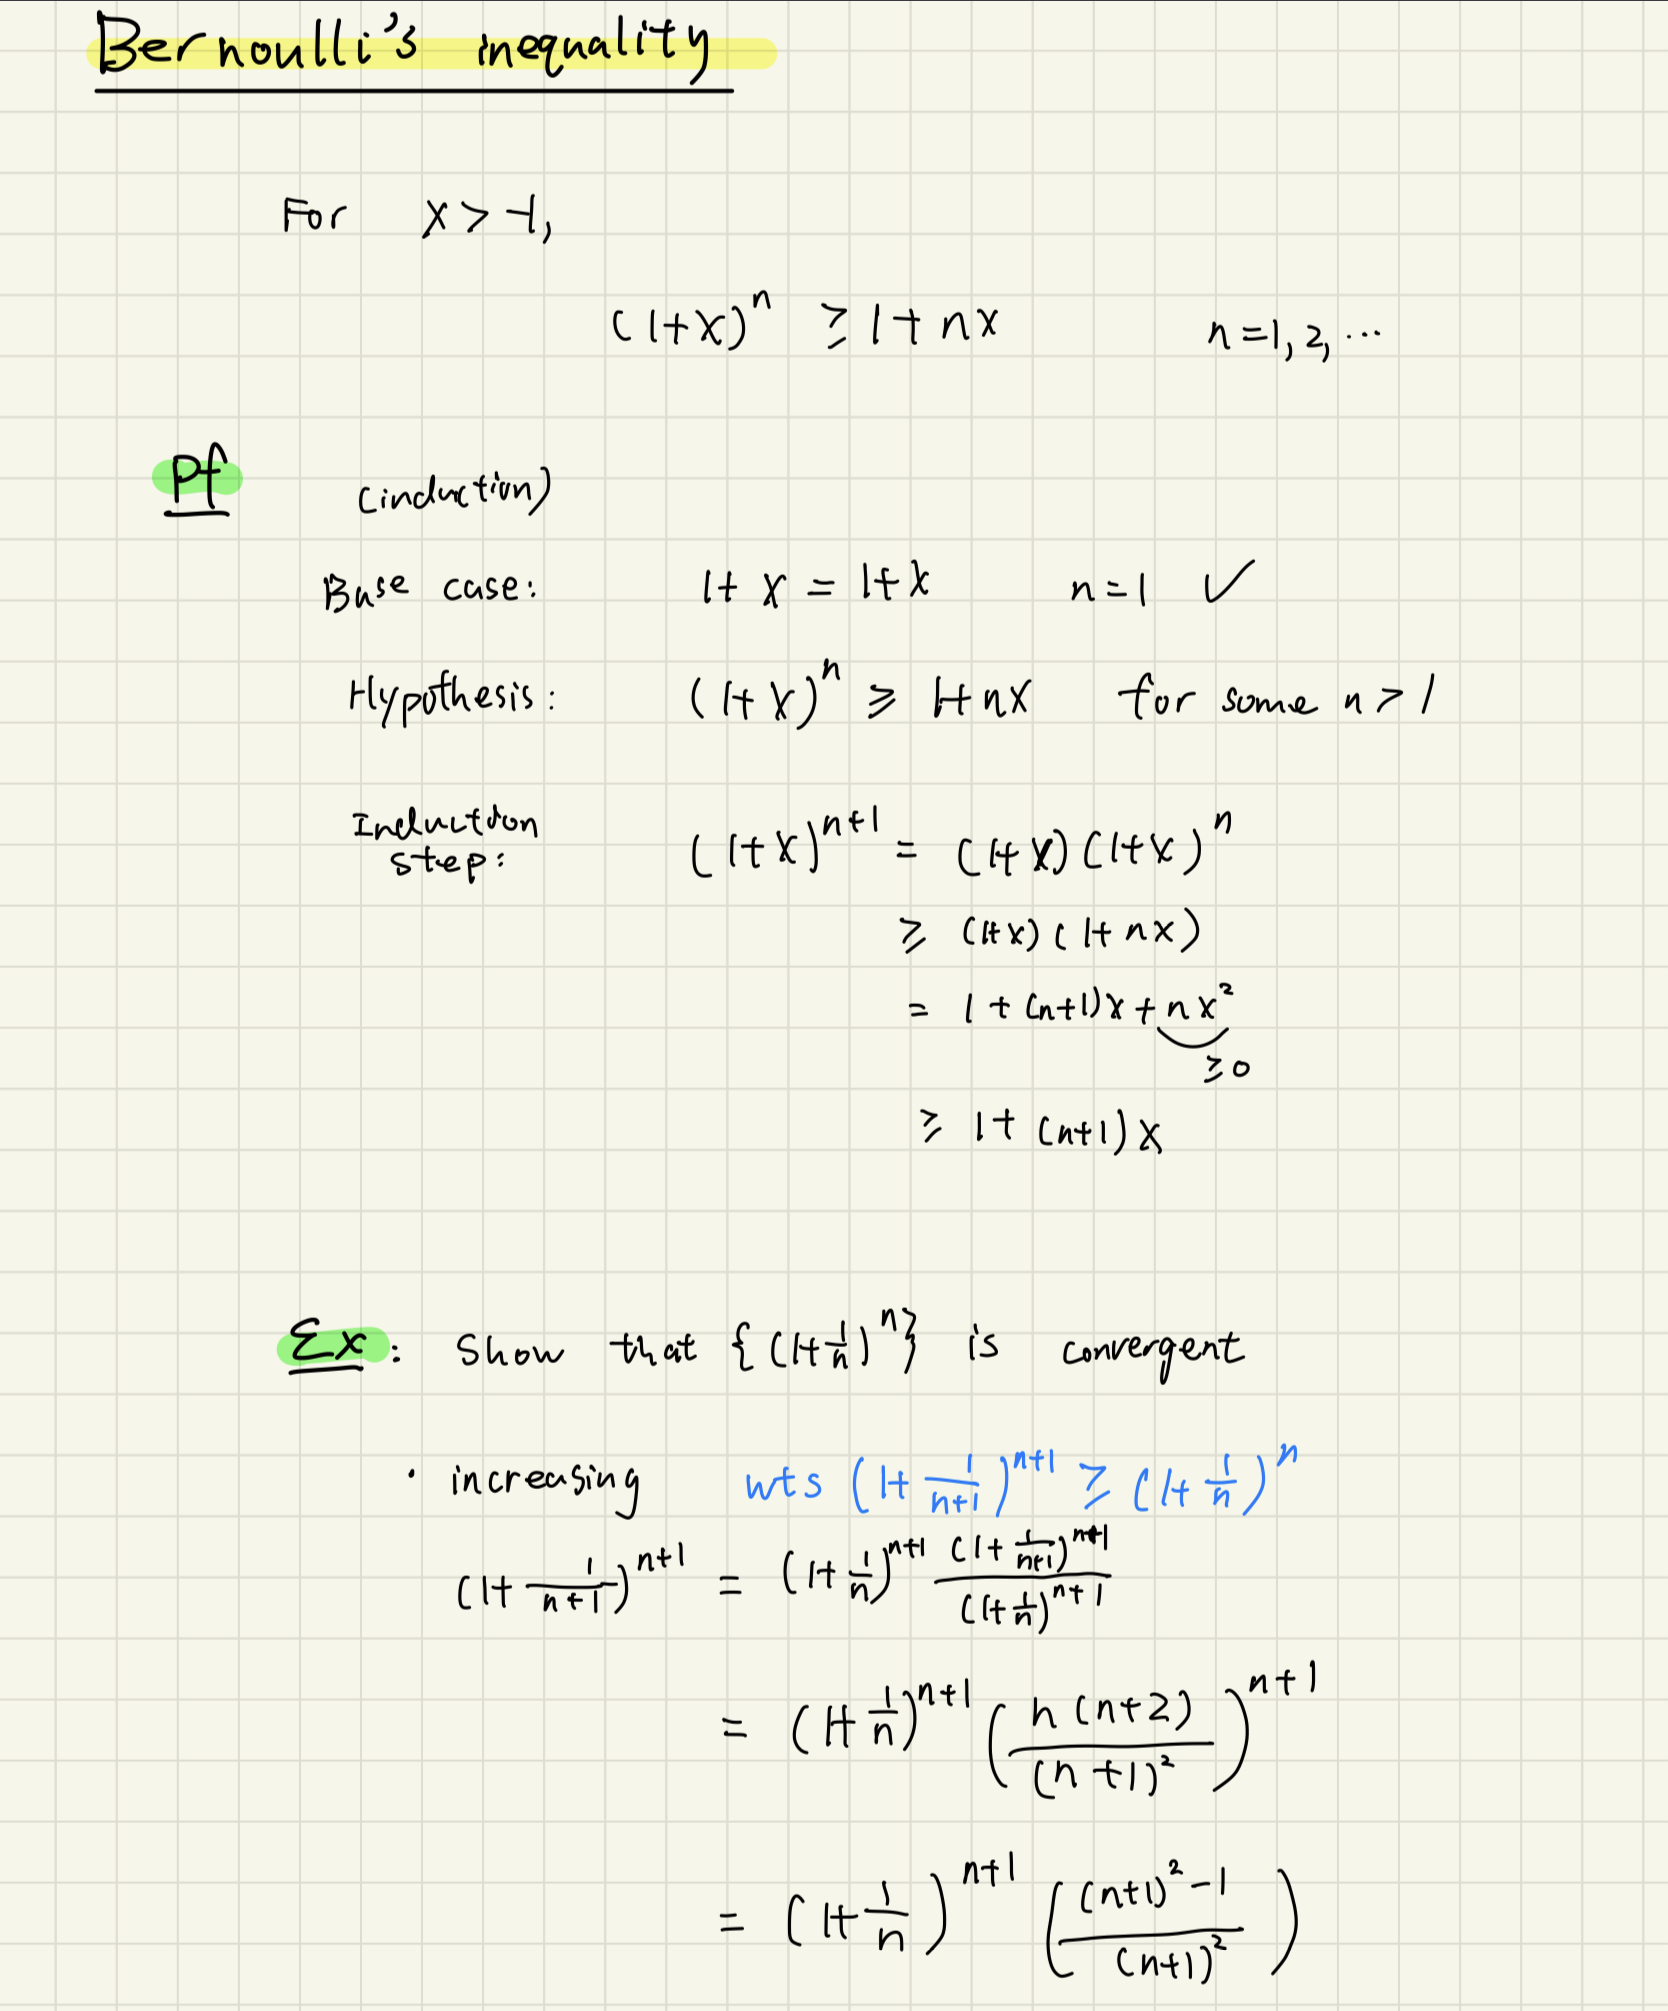 Bernoulli's inequality
For x > -1,
(1+x)^n ≥ 1+nx n=1, 2, ...
Pf (induction)
Base case: 1+x = 1+x n=1 ✓
Hypothesis: (1+x)^n ≥ 1+nx for some n > 1
Induction step: (1+x)^{n+1} = (1+x)(1+x)^n
≥ (1+x)(1+nx)
= 1+(n+1)x+nx^2
≥0
≥ 1+(n+1)x
Ex: Show that {(1+\frac{1}{n})^n} is convergent
· increasing wts (1+\frac{1}{n+1})^{n+1} ≥ (1+\frac{1}{n})^n
(1+\frac{1}{n+1})^{n+1} = (1+\frac{1}{n})^{n+1} \frac{(1+\frac{1}{n+1})^{n+1}}{(1+\frac{1}{n})^{n+1}}
= (1+\frac{1}{n})^{n+1} (\frac{n(n+2)}{(n+1)^2})^{n+1}
= (1+\frac{1}{n})^{n+1} (\frac{(n+1)^2-1}{(n+1)^2})